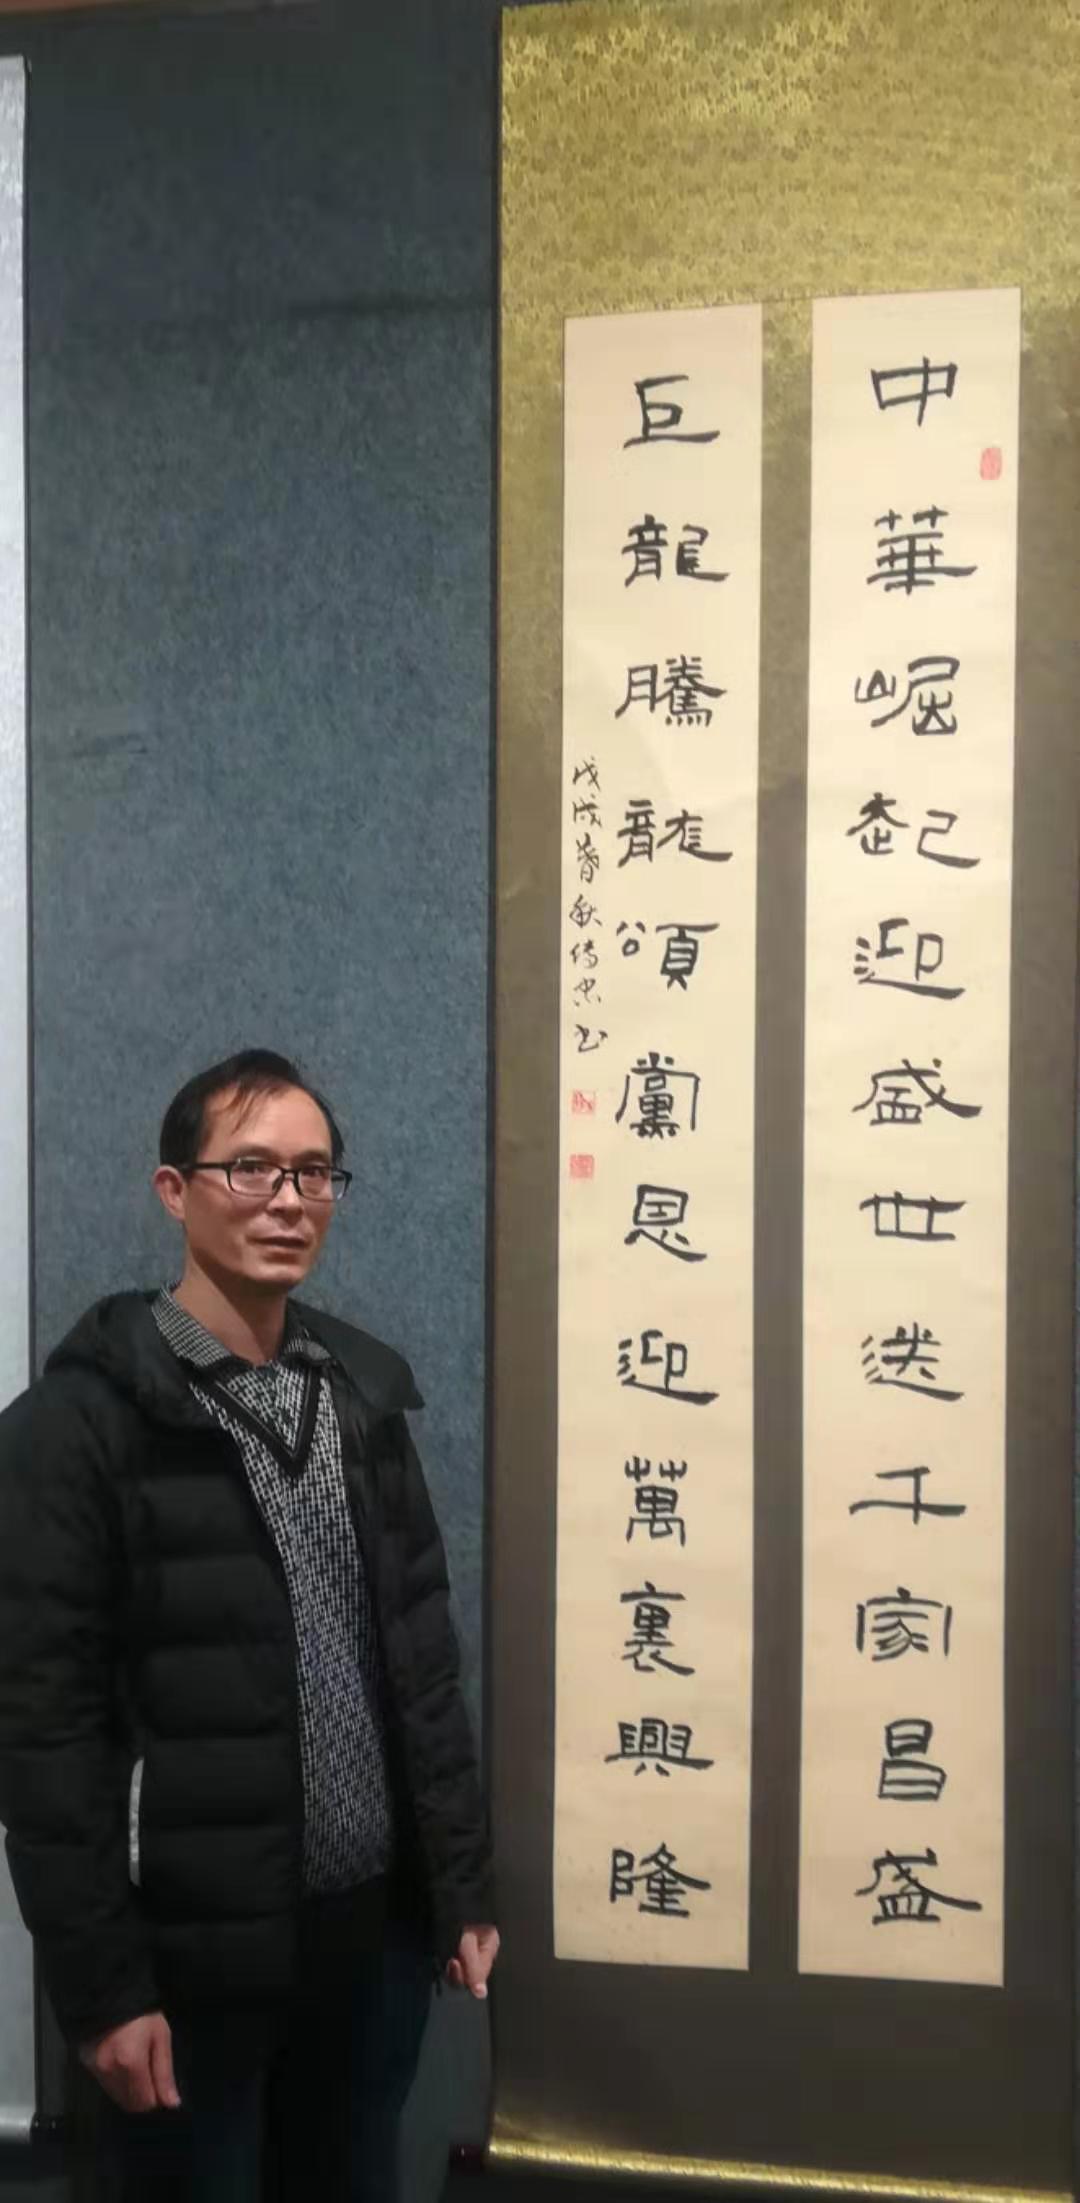 中華崛起迎盛世送千家昌盛
巨龍騰龍頌黨恩迎萬裏興隆
戊戌暮秋傳忠書